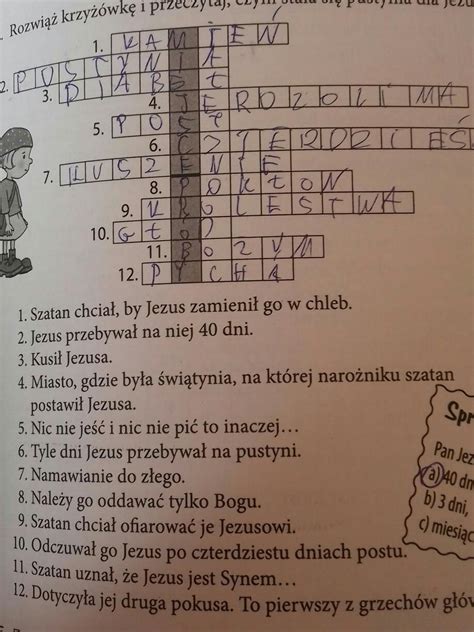 Rozwiąż krzyżówkę i przeczytaj, czym stała się pustynia dla Jezu
1. KAMIEŃ
2. PUSTYNIA
3. DIABEŁ
4. JEROZOLIMA
5. POST
6. CZTERDZIEŚ
7. KUSZENIE
8. POKŁON
9. KROLESTWA
10. GŁÓD
11. BOŻYM
12. PYCHA
1. Szatan chciał, by Jezus zamienił go w chleb.
2. Jezus przebywał na niej 40 dni.
3. Kusił Jezusa.
4. Miasto, gdzie była świątynia, na której narożniku szatan
postawił Jezusa.
5. Nic nie jeść i nic nie pić to inaczej…
6. Tyle dni Jezus przebywał na pustyni.
7. Namawianie do złego.
8. Należy go oddawać tylko Bogu.
9. Szatan chciał ofiarować je Jezusowi.
10. Odczuwał go Jezus po czterdziestu dniach postu.
11. Szatan uznał, że Jezus jest Synem…
12. Dotyczyła jej druga pokusa. To pierwszy z grzechów głów
Spr
Pan Jez
a) 40 dn
b) 3 dni,
c) miesiąc